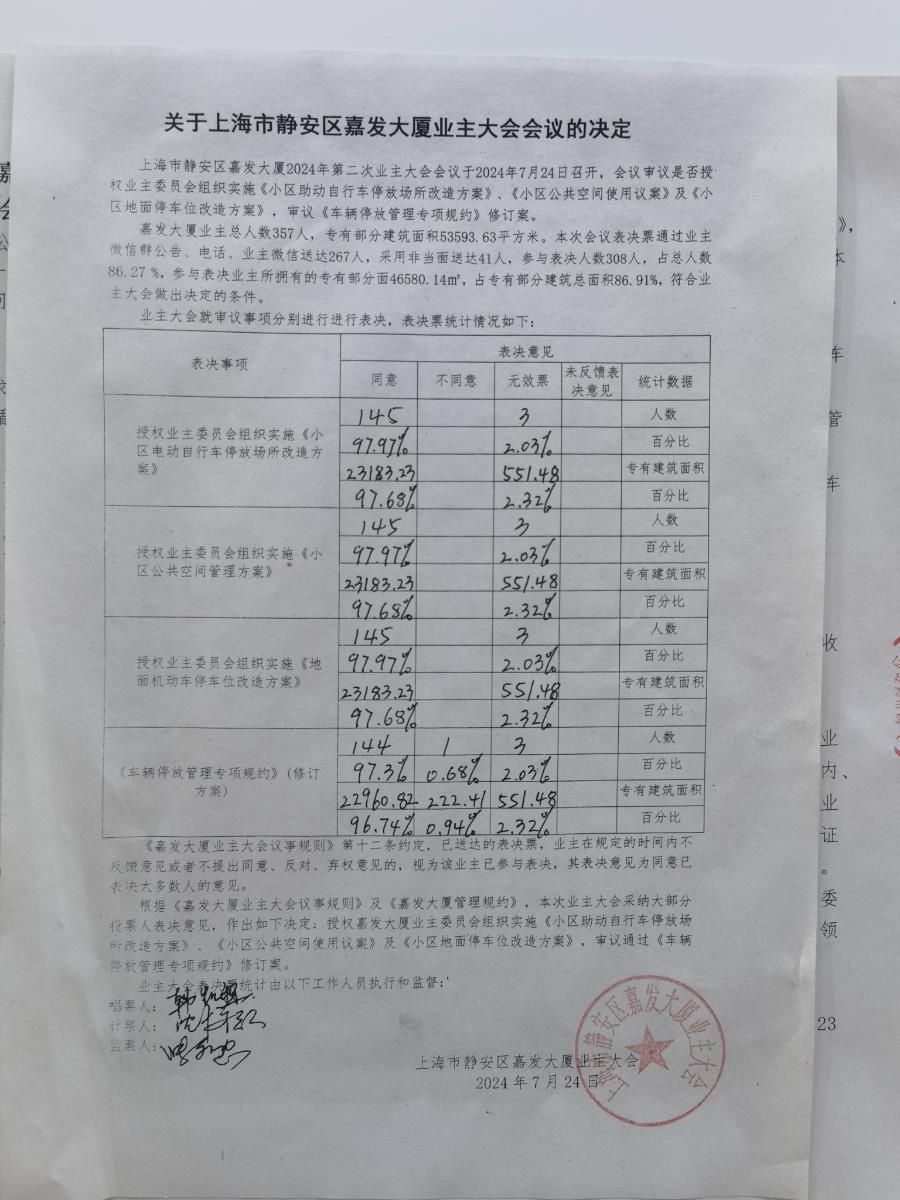 关于上海市静安区嘉发大厦业主大会会议的决定
上海市静安区嘉发大厦2024年第二次业主大会会议于2024年7月24日召开，会议审议是否授
权业主委员会组织实施《小区助动自行车停放场所改造方案》、《小区公共空间使用议案》及《小
区地面停车位改造方案》，审议《车辆停放管理专项规约》修订案。
嘉发大厦业主总人数357人，专有部分建筑面积53593.63平方米。本次会议表决票通过业主
微信群公告、电话、业主微信送达267人，采用非当面送达41人，参与表决人数308人，占总人数
86.27 %，参与表决业主所拥有的专有部分面46580.14㎡，占专有部分建筑总面积86.91%，符合业
主大会做出决定的条件。
业主大会就审议事项分别进行进行表决，表决票统计情况如下：
表决事项 表决意见
同意 不同意 无效票 未反馈表决意见 统计数据
授权业主委员会组织实施《小
区电动自行车停放场所改造方
案》
145 3 人数
97.97% 2.03% 百分比
23183.23 551.48 专有建筑面积
97.68% 2.32% 百分比
授权业主委员会组织实施《小
区公共空间管理方案》
145 3 人数
97.97% 2.03% 百分比
23183.23 551.48 专有建筑面积
97.68% 2.32% 百分比
授权业主委员会组织实施《地
面机动车停车位改造方案》
145 3 人数
97.97% 2.03% 百分比
23183.23 551.48 专有建筑面积
97.68% 2.32% 百分比
《车辆停放管理专项规约》(修订
方案)
144 1 3 人数
97.3% 0.68% 2.03% 百分比
22960.82 222.41 551.48 专有建筑面积
96.74% 0.94% 2.32% 百分比
《嘉发大厦业主大会议事规则》第十二条约定，已送达的表决票，业主在规定的时间内不
反馈意见或者不提出同意、反对、弃权意见的，视为该业主已参与表决，其表决意见为同意已
表决大多数人的意见。
根据《嘉发大厦业主大会议事规则》及《嘉发大厦管理规约》，本次业主大会采纳大部分
投票人表决意见，作出如下决定：授权嘉发大厦业主委员会组织实施《小区助动自行车停放场
所改造方案》、《小区公共空间使用议案》及《小区地面停车位改造方案》，审议通过《车辆
停放管理专项规约》修订案。
业主大会表决票统计由以下工作人员执行和监督：
唱票人：
计票人：
监票人：
上海市静安区嘉发大厦业主大会
2024 年 7 月 24 日
上海市静安区嘉发大厦业主大会
》，
本
车
管
车
收
业
内、
业
证
。
委
领
23